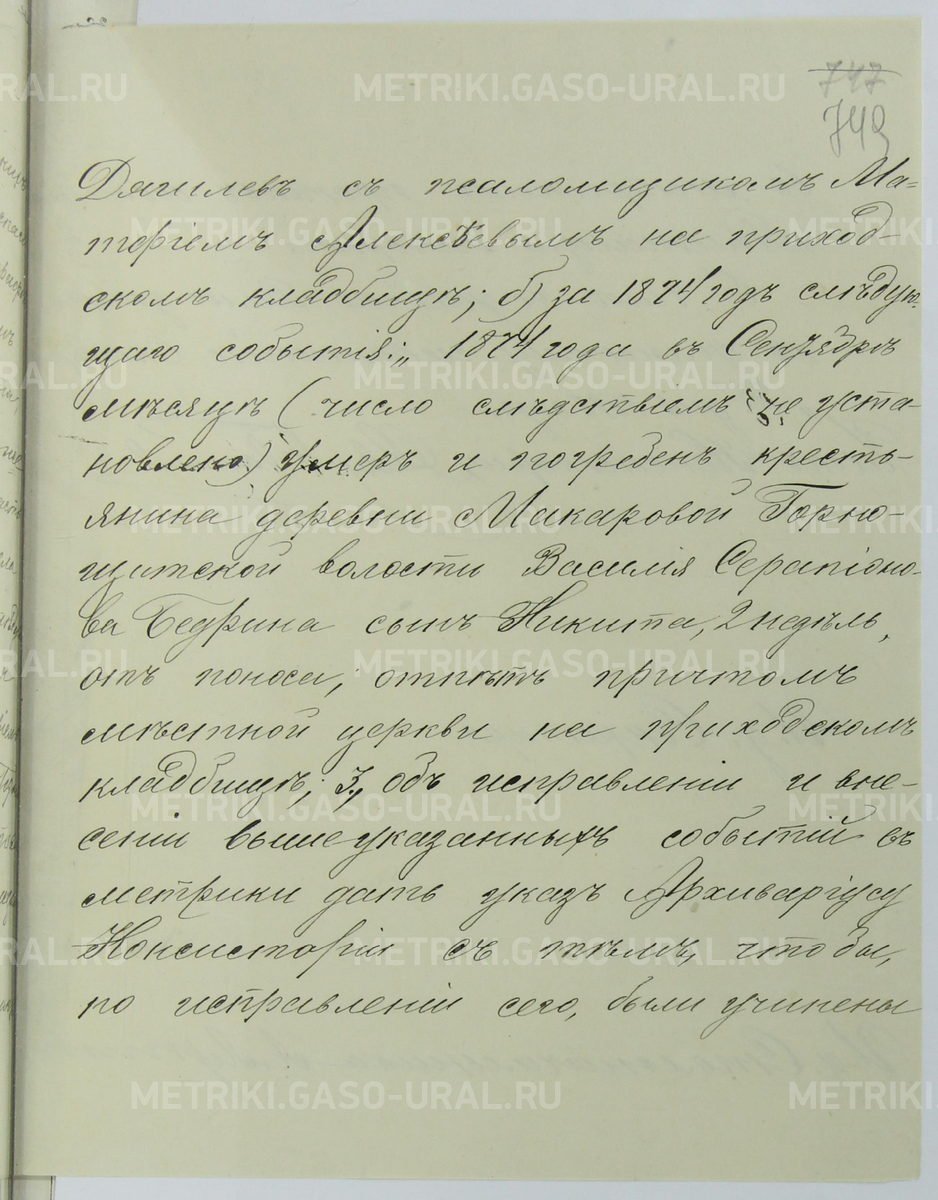 747
749
Дягилевъ съ псаломщикомъ Ма-
тфіемъ Алексѣевымъ на приход-
скомъ кладбищѣ; б) за 1874 годъ слѣдую-
щаго событія: „1874 года въ Сентябрѣ
мѣсяцѣ (число слѣдствіемъ не уста-
новлено) умеръ и погребенъ кресть-
янина деревни Макаровой Горно-
щитской волости Василія Серапіоно-
ва Бедрина сынъ Никита, 2 недѣль,
отъ поноса, отпѣтъ причтомъ
мѣстной церкви на приходскомъ
кладбищѣ; 3., объ исправленіи и вне-
сеніи вышеуказанныхъ событій въ
метрики дать указъ Архиваріусу
Консисторіи съ тѣмъ, чтобы,
по исправленіи сего, были учинены
METRIKI.GASO-URAL.RU